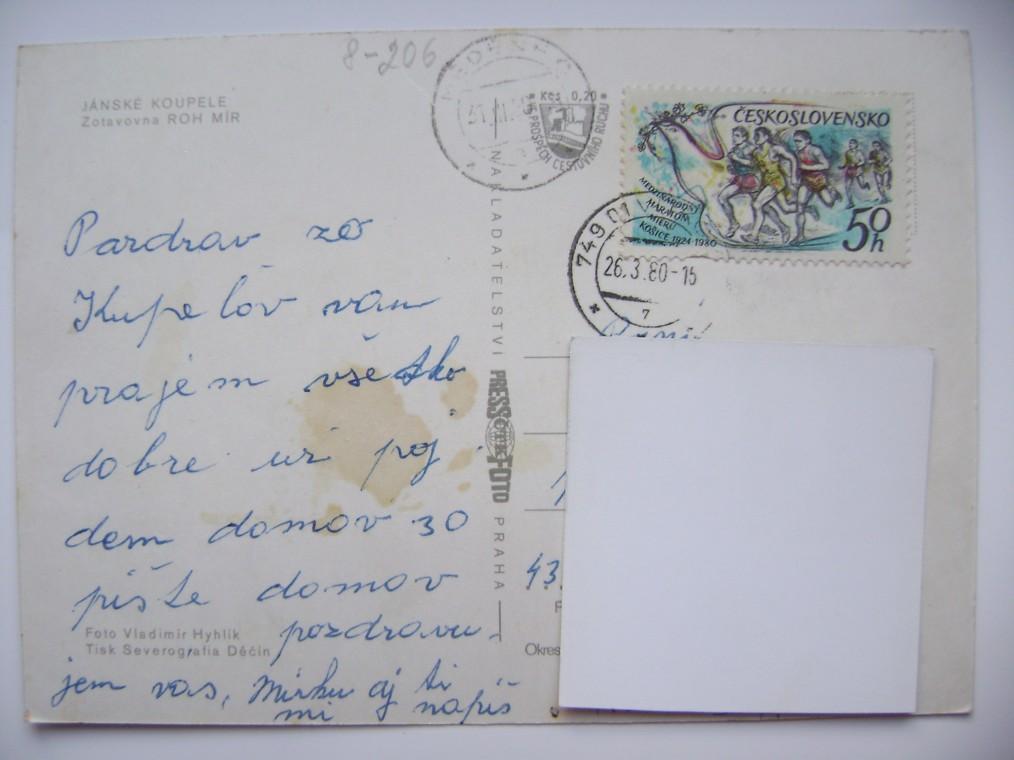 8-206
JÁNSKÉ KOUPELE
Zotavovna ROH MÍR
Kčs 0,20
VE PROSPĚCH CESTOVNÍHO RUCHU
ČESKOSLOVENSKO
MEDZINÁRODNÝ
MARATÓN
MIERU
KOŠICE 1924-1980
50h
749 01
26.3.80-15
7
Pazdrav zo
Kupelov vám
prajem všetko
dobre uz poj
dem domov 30
píšte domov
pozdravu-
jem vas, Mirku aj ti
mi napíš
NAKLADATELSTVÍ PRESSFOTO PRAHA
ČTK
43
Foto Vladimír Hyhlík
Tisk Severografia Děčín
Okres